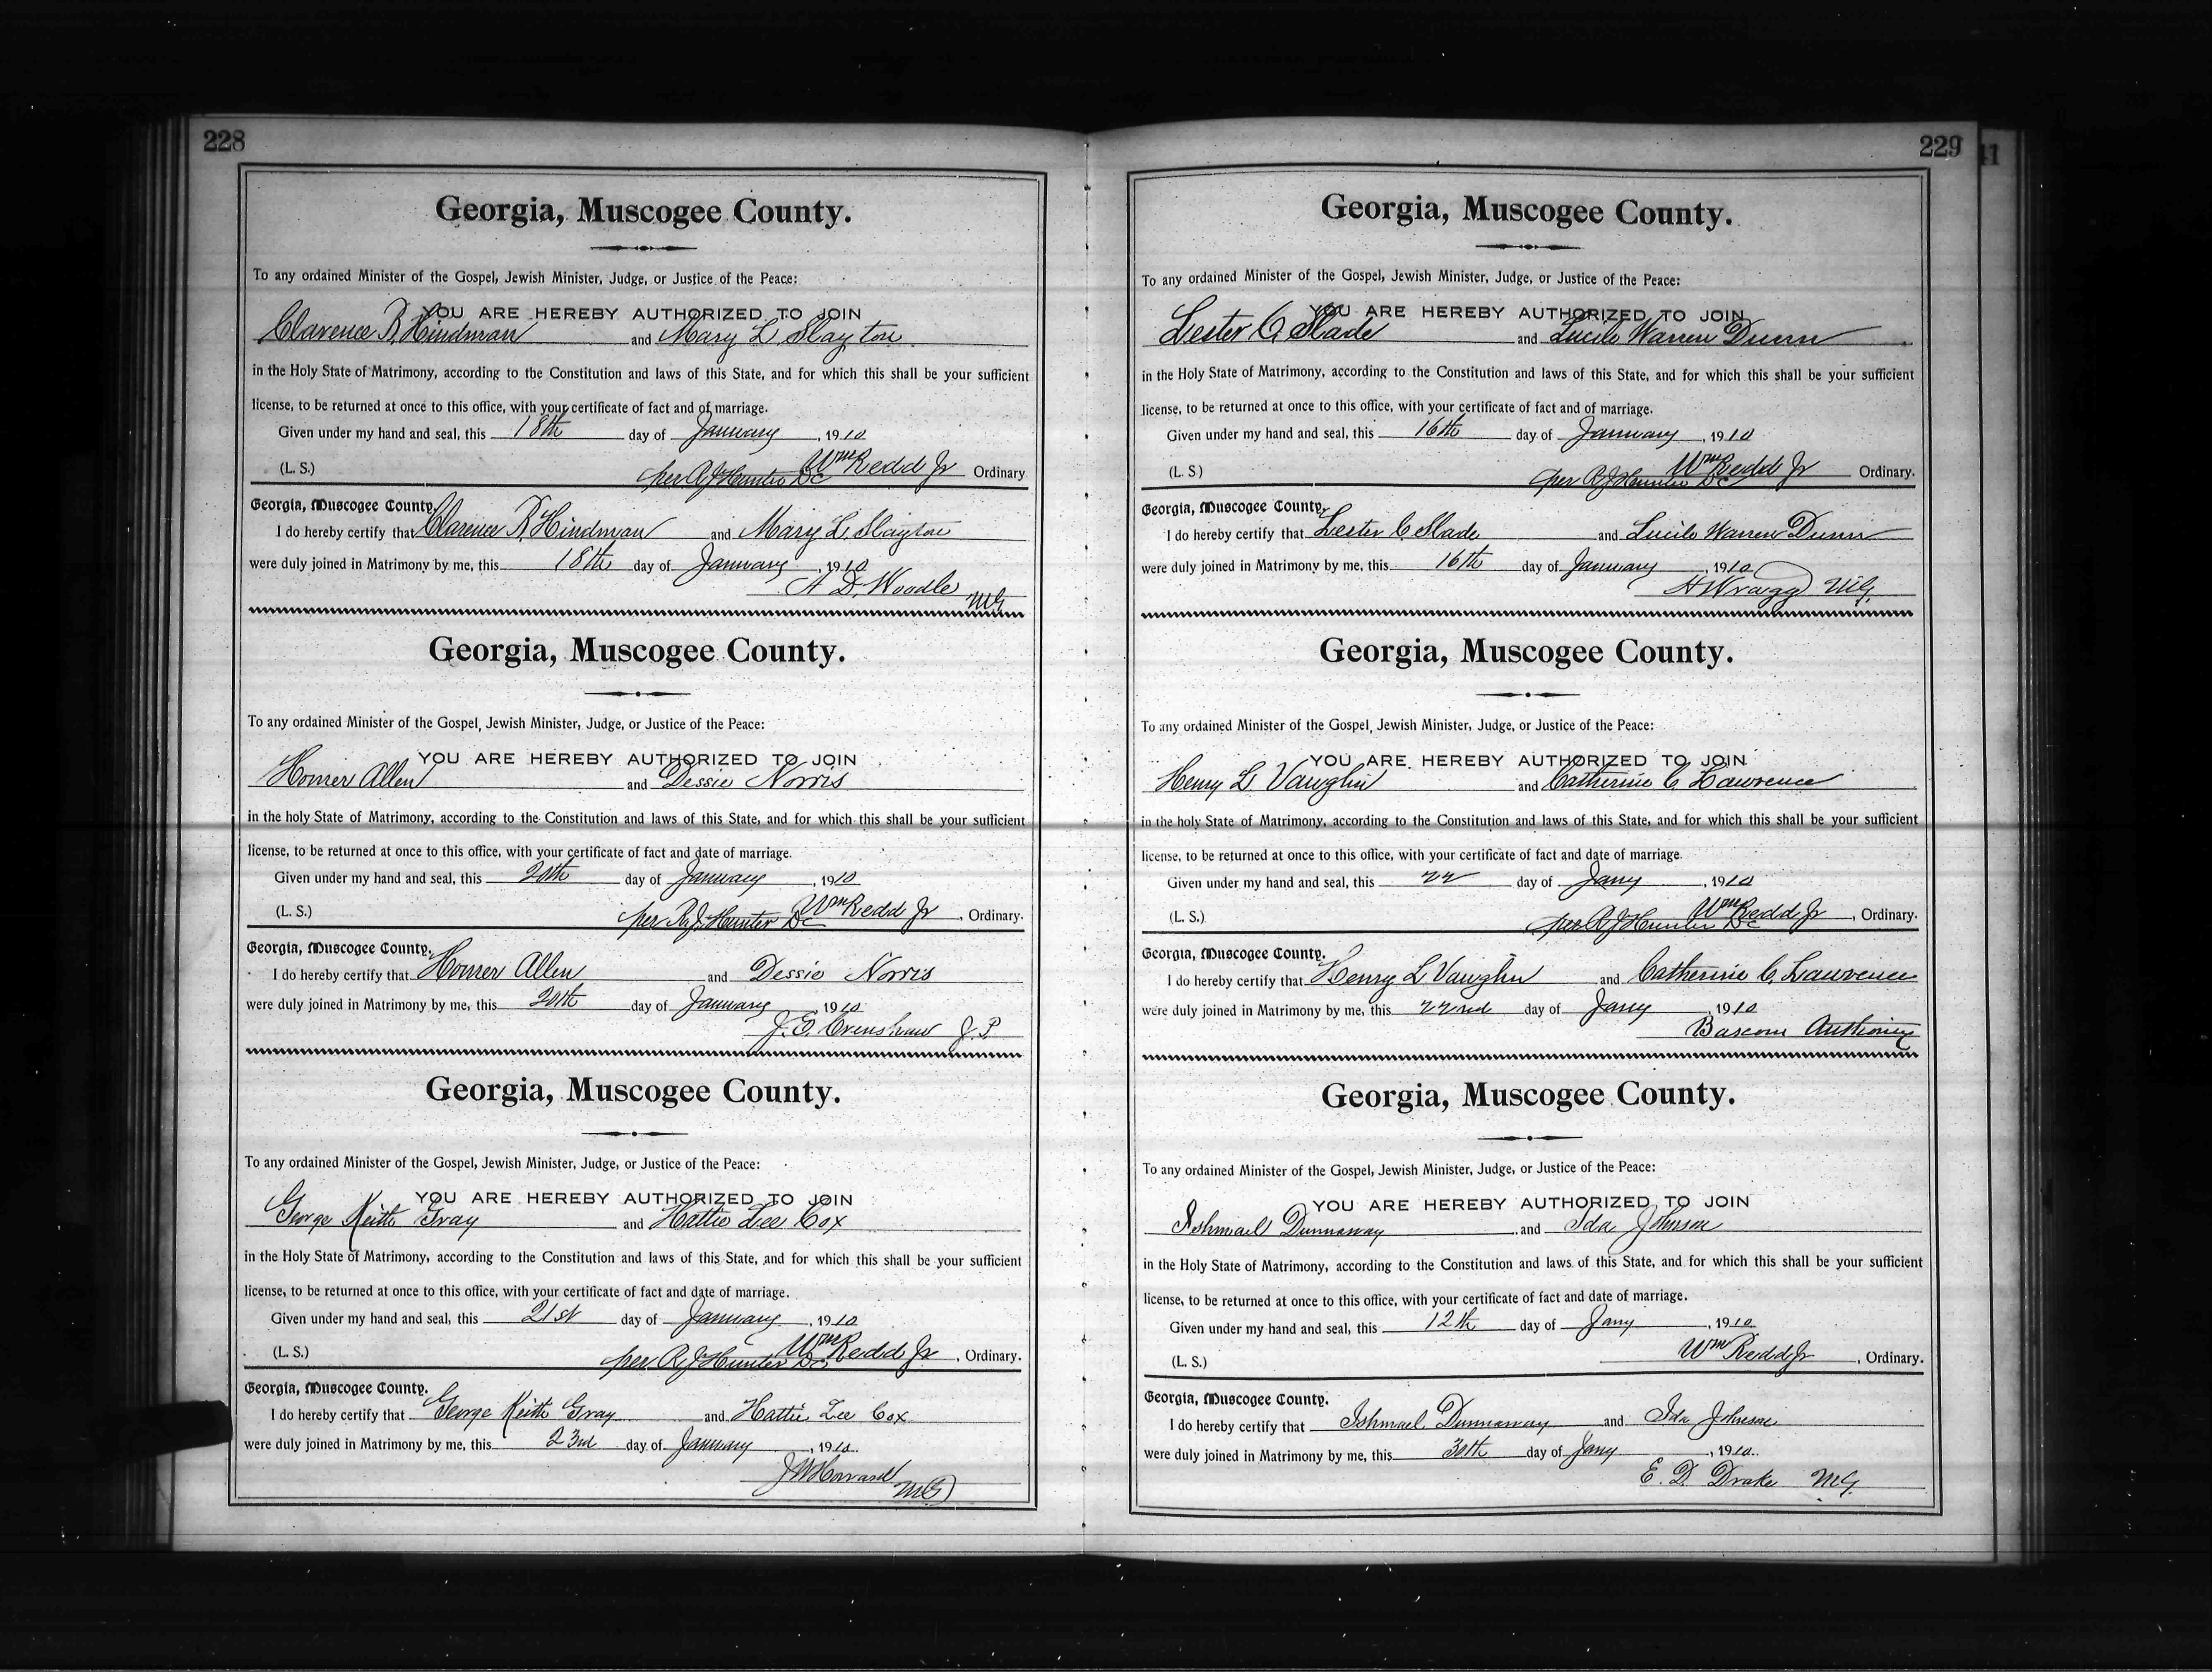 228
Georgia, Muscogee County.
To any ordained Minister of the Gospel, Jewish Minister, Judge, or Justice of the Peace:
YOU ARE HEREBY AUTHORIZED TO JOIN
Clarence R. Hindman and Mary L Slayton
in the Holy State of Matrimony, according to the Constitution and laws of this State, and for which this shall be your sufficient
license, to be returned at once to this office, with your certificate of fact and of marriage.
Given under my hand and seal, this 18th day of January, 1910
(L. S.) per R J Hunter DC Wm Redd Jr Ordinary
Georgia, Muscogee County.
I do hereby certify that Clarence R. Hindman and Mary L. Slayton
were duly joined in Matrimony by me, this 18th day of January, 1910
A D. Woodle MG
Georgia, Muscogee County.
To any ordained Minister of the Gospel, Jewish Minister, Judge, or Justice of the Peace:
YOU ARE HEREBY AUTHORIZED TO JOIN
Homer Allen and Dessie Norris
in the holy State of Matrimony, according to the Constitution and laws of this State, and for which this shall be your sufficient
license, to be returned at once to this office, with your certificate of fact and date of marriage.
Given under my hand and seal, this 20th day of January, 1910
(L. S.) per R. J. Hunter DC Wm Redd Jr, Ordinary.
Georgia, Muscogee County.
I do hereby certify that Homer Allen and Dessie Norris
were duly joined in Matrimony by me, this 20th day of January, 1910
J. E. Crenshaw J. P.
Georgia, Muscogee County.
To any ordained Minister of the Gospel, Jewish Minister, Judge, or Justice of the Peace:
YOU ARE HEREBY AUTHORIZED TO JOIN
George Keith Gray and Hattie Lee Cox
in the Holy State of Matrimony, according to the Constitution and laws of this State, and for which this shall be your sufficient
license, to be returned at once to this office, with your certificate of fact and date of marriage.
Given under my hand and seal, this 21st day of January, 1910
(L. S.) per R J Hunter DC Wm Redd Jr, Ordinary.
Georgia, Muscogee County.
I do hereby certify that George Keith Gray and Hattie Lee Cox
were duly joined in Matrimony by me, this 23rd day of January, 1910.
J W Howard MG
229
41
Georgia, Muscogee County.
To any ordained Minister of the Gospel, Jewish Minister, Judge, or Justice of the Peace:
YOU ARE HEREBY AUTHORIZED TO JOIN
Lester C Slade and Lucile Warren Dunn
in the Holy State of Matrimony, according to the Constitution and laws of this State, and for which this shall be your sufficient
license, to be returned at once to this office, with your certificate of fact and of marriage.
Given under my hand and seal, this 16th day of January, 1910
(L. S.) per R J Hunter DC Wm Redd Jr Ordinary.
Georgia, Muscogee County.
I do hereby certify that Lester C Slade and Lucile Warren Dunn
were duly joined in Matrimony by me, this 16th day of January, 1910
H Wragg MG.
Georgia, Muscogee County.
To any ordained Minister of the Gospel, Jewish Minister, Judge, or Justice of the Peace:
YOU ARE HEREBY AUTHORIZED TO JOIN
Henry L Vaughn and Catherine C. Lawrence
in the holy State of Matrimony, according to the Constitution and laws of this State, and for which this shall be your sufficient
license, to be returned at once to this office, with your certificate of fact and date of marriage.
Given under my hand and seal, this 22 day of Jany, 1910
(L. S.) per R J Hunter DC Wm Redd Jr, Ordinary.
Georgia, Muscogee County.
I do hereby certify that Henry L Vaughn and Catherine C. Lawrence
were duly joined in Matrimony by me, this 22nd day of Jany, 1910
Bascom Anthony
Georgia, Muscogee County.
To any ordained Minister of the Gospel, Jewish Minister, Judge, or Justice of the Peace:
YOU ARE HEREBY AUTHORIZED TO JOIN
Ishmael Dunnaway and Ida Johnson
in the Holy State of Matrimony, according to the Constitution and laws of this State, and for which this shall be your sufficient
license, to be returned at once to this office, with your certificate of fact and date of marriage.
Given under my hand and seal, this 12th day of Jany, 1910
(L. S.) Wm Redd Jr, Ordinary.
Georgia, Muscogee County.
I do hereby certify that Ishmael Dunnaway and Ida Johnson
were duly joined in Matrimony by me, this 30th day of Jany, 1910.
E. D. Drake MG.